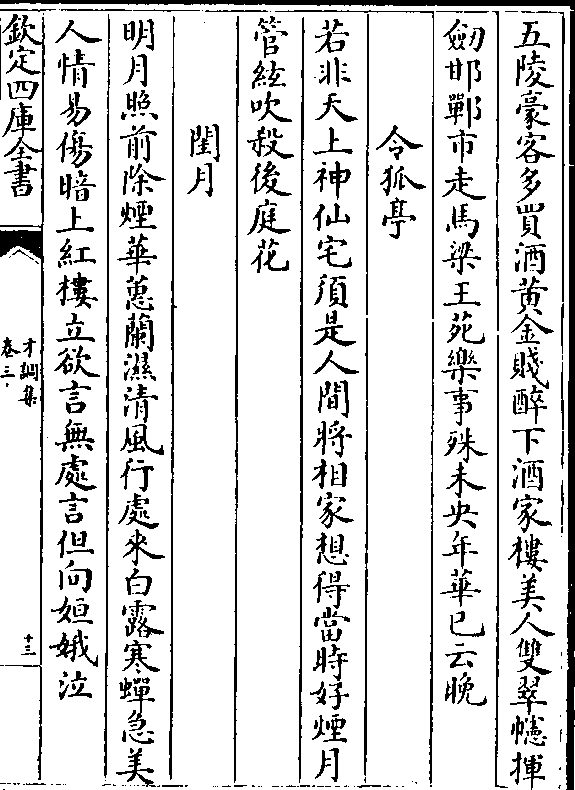 五陵豪客多買酒黄金賤醉下酒家樓美人雙翠幰揮
劒邯鄲市走馬梁王苑樂事殊未央年華已云晚
令狐亭
若非天上神仙宅須是人間將相家想得當時好煙月
管絃吹殺後庭花
閨月
明月照前除煙華蕙蘭濕清風行處來白露寒蟬急美
人情易傷暗上紅樓立欲言無處言但向姮娥泣
欽定四庫全書
才調集
卷三
十三